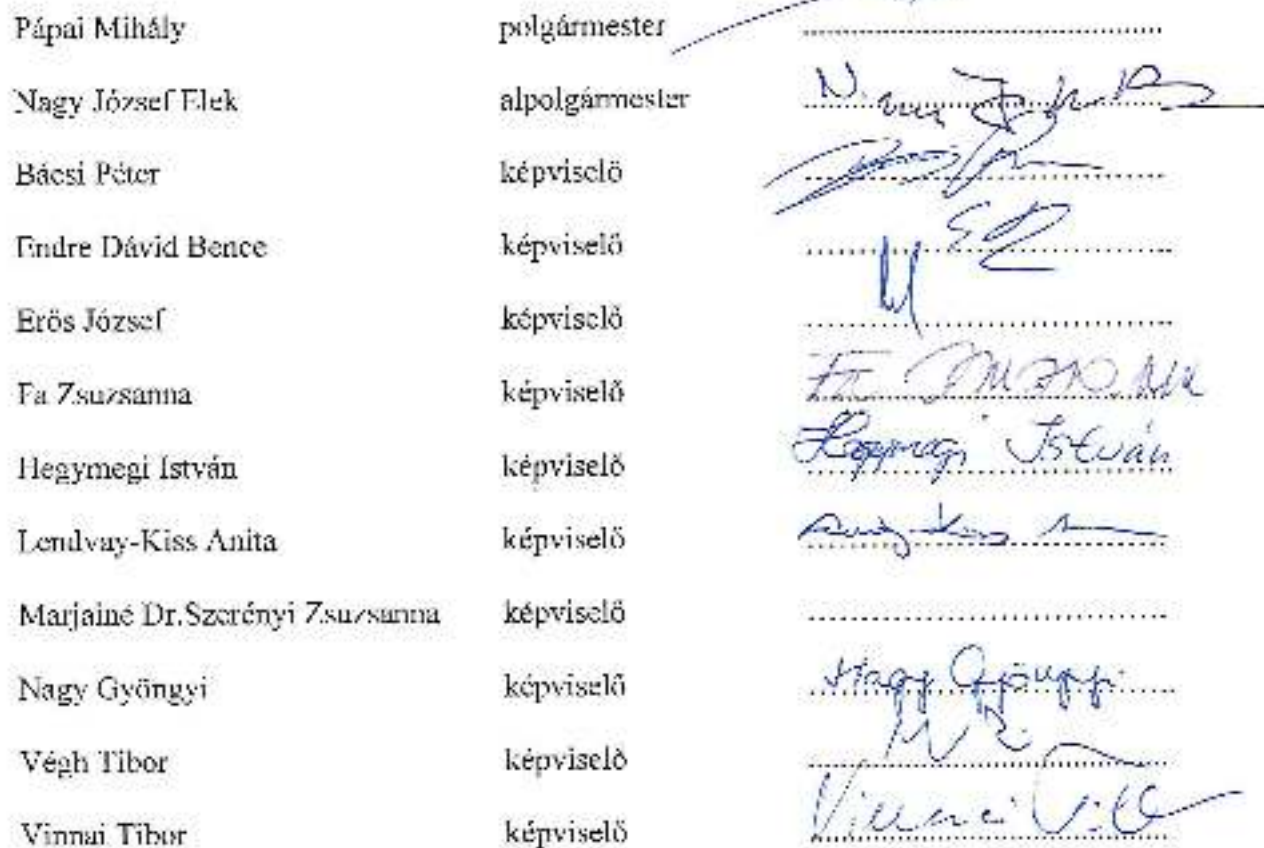 Pápai Mihály polgármester
Nagy József Elek alpolgármester
Bácsi Péter képviselő
Endre Dávid Bence képviselő
Erős József képviselő
Fa Zsuzsanna képviselő
Hegymegi István képviselő Hegymegi István
Lendvay-Kiss Anita képviselő
Marjainé Dr.Szerényi Zsuzsanna képviselő
Nagy Gyöngyi képviselő Nagy Gyöngyi
Végh Tibor képviselő
Vinnai Tibor képviselő